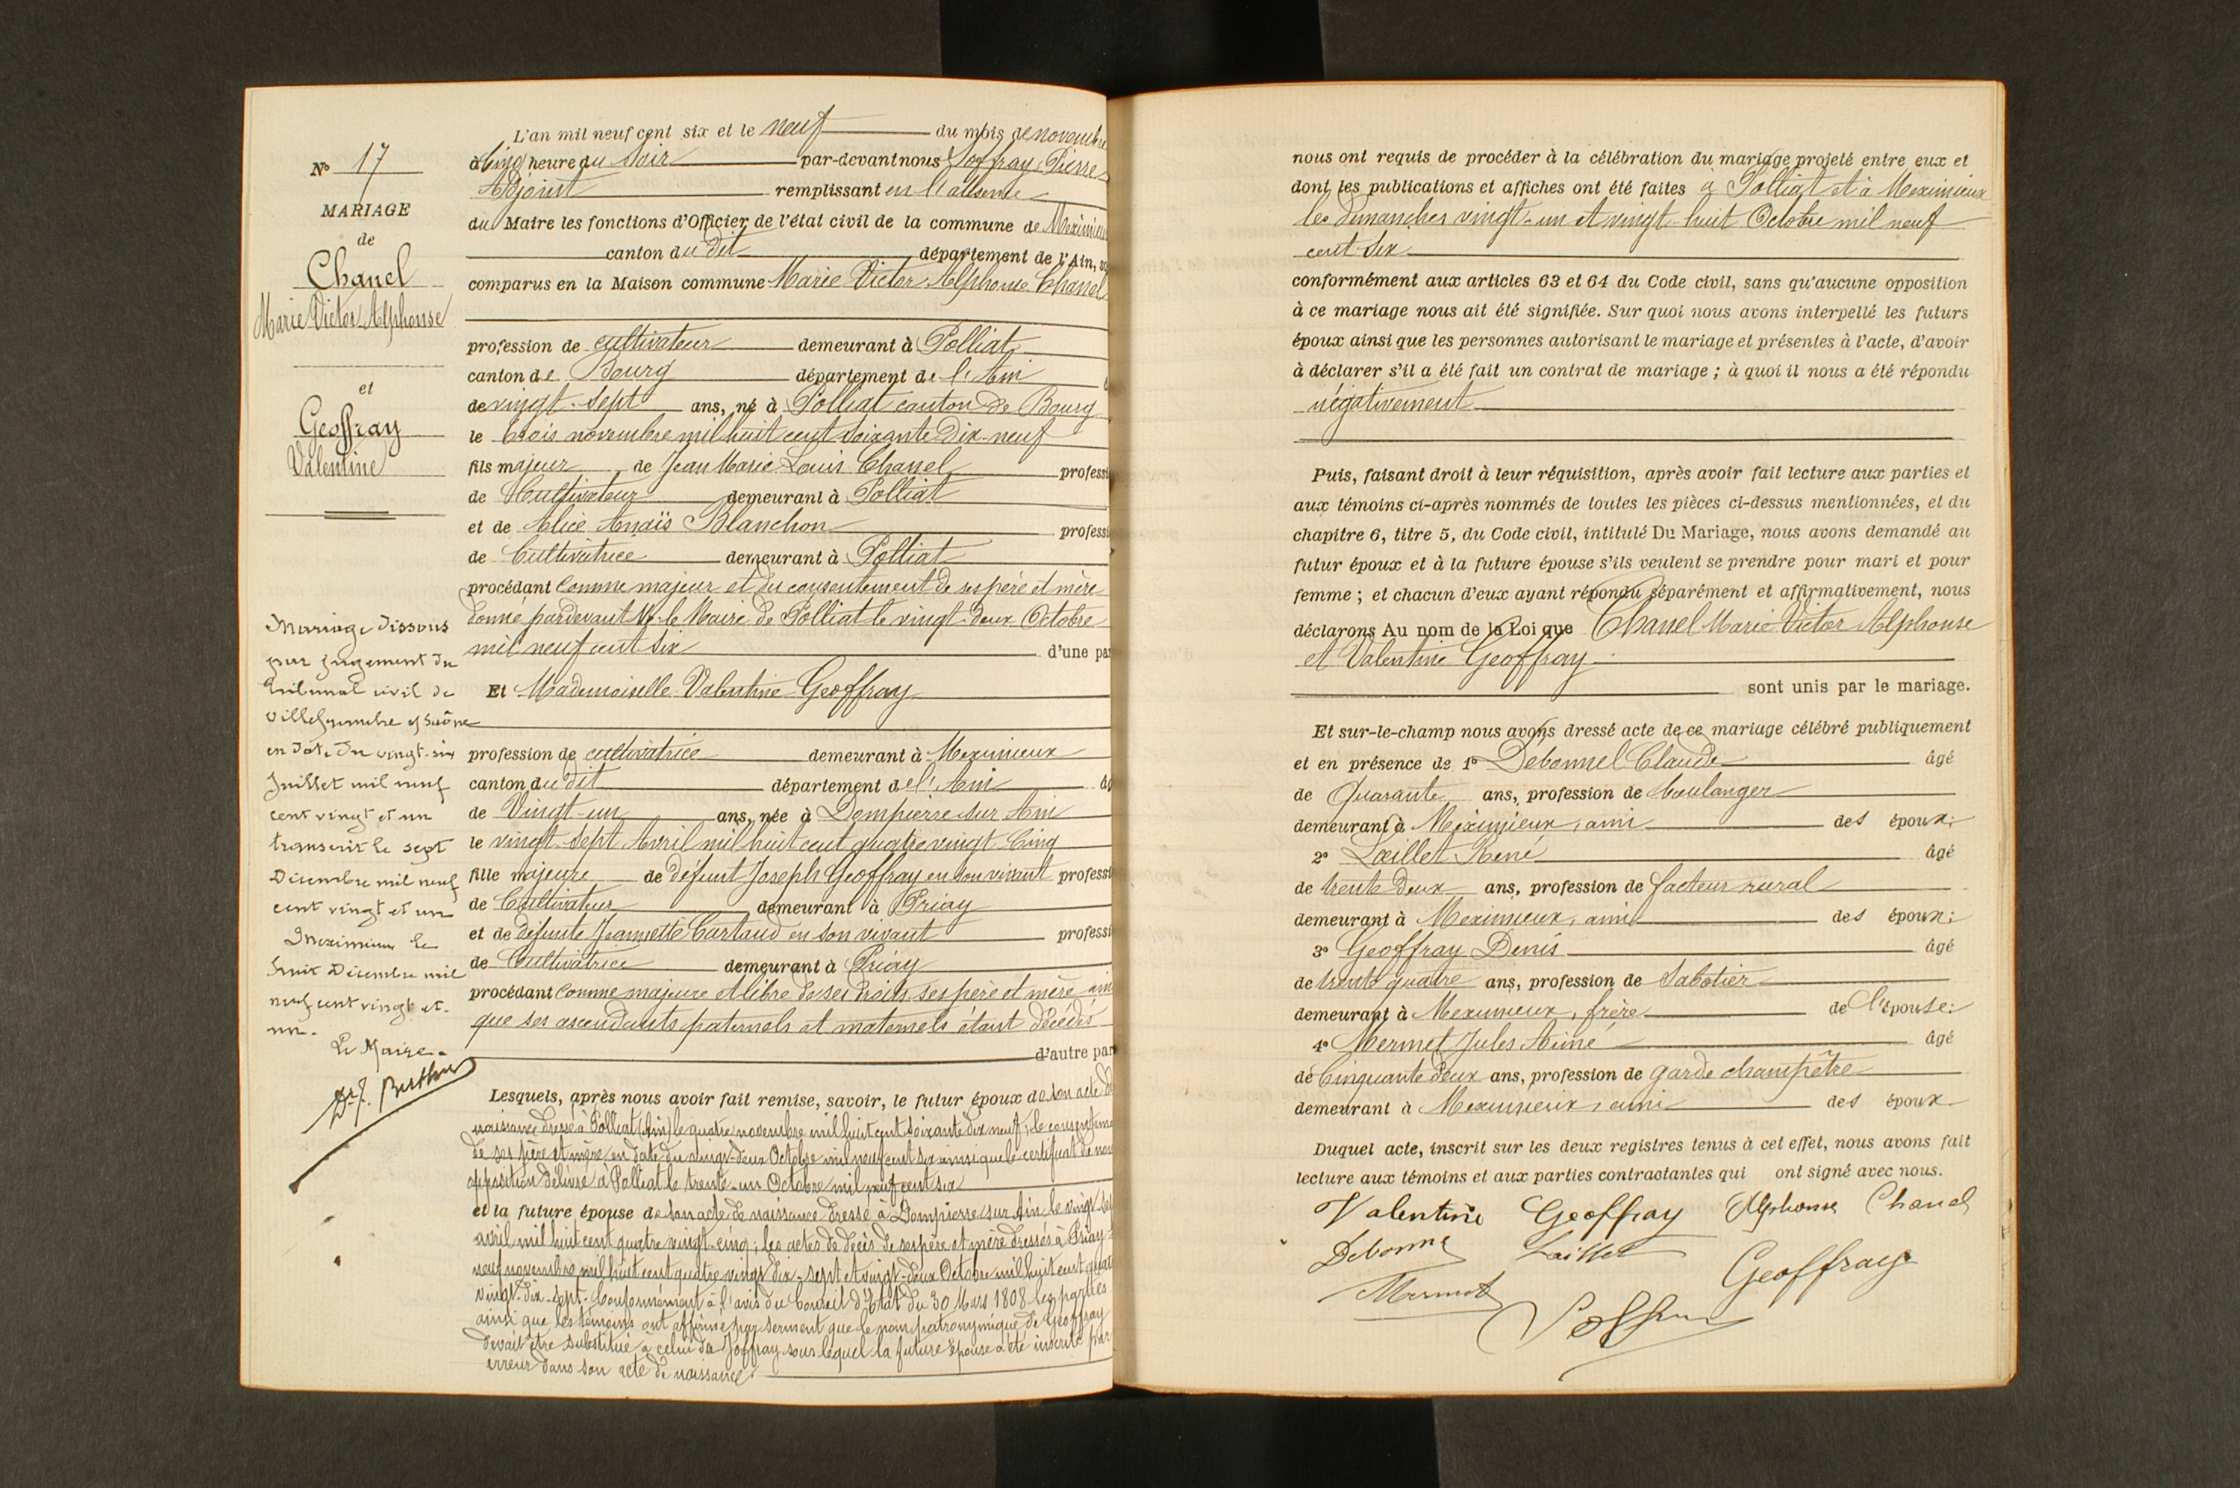 N° 17
MARIAGE
de
Chanel
Marie Victor Alphonse
et
Geoffray
Valentine
Mariage dissous
par jugement du
tribunal civil de
Villefranche s/ Saône
en date du vingt-six
Juillet mil neuf
cent vingt et un
transcrit le sept
Décembre mil neuf
cent vingt et un
Meximieux le
huit Décembre mil
neuf cent vingt et
un.
Le Maire
L'an mil neuf cent six et le neuf du mois de novembre
à cinq heure du soir par-devant nous Joffray Pierre
Adjoint remplissant en l'absence
du Maire les fonctions d'Officier de l'état civil de la commune de Meximieux
canton du dit département de l'Ain,
comparus en la Maison commune Marie Victor Alphonse Chanel
profession de cultivateur demeurant à Polliat
canton de Bourg département de l'Ain
de vingt-sept ans, né à Polliat canton de Bourg
le trois novembre mil huit cent soixante dix-neuf
fils majeur de Jean Marie Louis Chanel professi
de Cultivateur demeurant à Polliat
et de Alice Anaïs Blanchon professi
de Cultivatrice demeurant à Polliat
procédant comme majeur et du consentement de ses père et mère
donné pardevant Mr le Maire de Polliat le vingt-deux Octobre
mil neuf cent six d'une par
Et Mademoiselle Valentine Geoffray
profession de cultivatrice demeurant à Meximieux
canton du dit département de l'Ain
de Vingt-un ans, née à Dompierre sur Ain
le vingt-sept Avril mil huit cent quatre vingt-Cinq
fille majeure de défunt Joseph Geoffray en son vivant professi
de Cultivateur demeurant à Priay
et de défunte Jeannette Cartaud en son vivant professi
de Cultivatrice demeurant à Priay
procédant comme majeure et libre de ses droits ses père et mère ain
que ses ascendants paternels et maternels étant décédés
d'autre par
Lesquels, après nous avoir fait remise, savoir, le futur époux de son acte de
naissance dressé à Polliat (Ain) le quatre novembre mil huit cent soixante dix neuf; le consenteme
de ses père et mère en date du vingt-deux Octobre mil neuf cent six ainsi que le certificat de non
opposition délivré à Polliat le trente-un Octobre mil neuf cent six
et la future épouse de son acte de naissance dressé à Dompierre sur Ain le vingt-
avril mil huit cent quatre vingt-cinq; les actes de décès de ses père et mère dressés à Priay
neuf novembre mil huit cent quatre vingt dix-sept et vingt-deux Octobre mil huit cent quat
vingt-dix-sept. Conformément à l'avis du Conseil d'Etat du 30 Mars 1808 les parties
ainsi que les témoins ont affirmé par serment que le nom patronymique de Geoffray
devait être substitué à celui de Joffray sous lequel la future épouse a été inscrite par
erreur dans son acte de naissance
nous ont requis de procéder à la célébration du mariage projeté entre eux et
dont les publications et affiches ont été faites à Polliat et à Meximieux
les dimanches vingt-un et vingt-huit Octobre mil neuf
cent six
conformément aux articles 63 et 64 du Code civil, sans qu'aucune opposition
à ce mariage nous ait été signifiée. Sur quoi nous avons interpellé les futurs
époux ainsi que les personnes autorisant le mariage et présentes à l'acte, d'avoir
à déclarer s'il a été fait un contrat de mariage ; à quoi il nous a été répondu
négativement
Puis, faisant droit à leur réquisition, après avoir fait lecture aux parties et
aux témoins ci-après nommés de toutes les pièces ci-dessus mentionnées, et du
chapitre 6, titre 5, du Code civil, intitulé Du Mariage, nous avons demandé au
futur époux et à la future épouse s'ils veulent se prendre pour mari et pour
femme ; et chacun d'eux ayant répondu séparément et affirmativement, nous
déclarons Au nom de la Loi que Chanel Marie Victor Alphonse
et Valentine Geoffray
sont unis par le mariage.
Et sur-le-champ nous avons dressé acte de ce mariage célébré publiquement
et en présence de 1° Debonnel Claude âgé
de Quarante ans, profession de boulanger
demeurant à Meximieux, ami des époux;
2° Lœillet René âgé
de trente deux ans, profession de facteur rural
demeurant à Meximieux, ami des époux;
3° Geoffray Denis âgé
de trente quatre ans, profession de Sabotier
demeurant à Meximieux, frère de l'épouse;
4° Mermet Jules Aimé âgé
de Cinquante deux ans, profession de garde champêtre
demeurant à Meximieux, ami des époux
Duquel acte, inscrit sur les deux registres tenus à cet effet, nous avons fait
lecture aux témoins et aux parties contractantes qui ont signé avec nous.
Valentine Geoffray Alphonse Chanel
Debonnel Lœillet Geoffray
Mermet